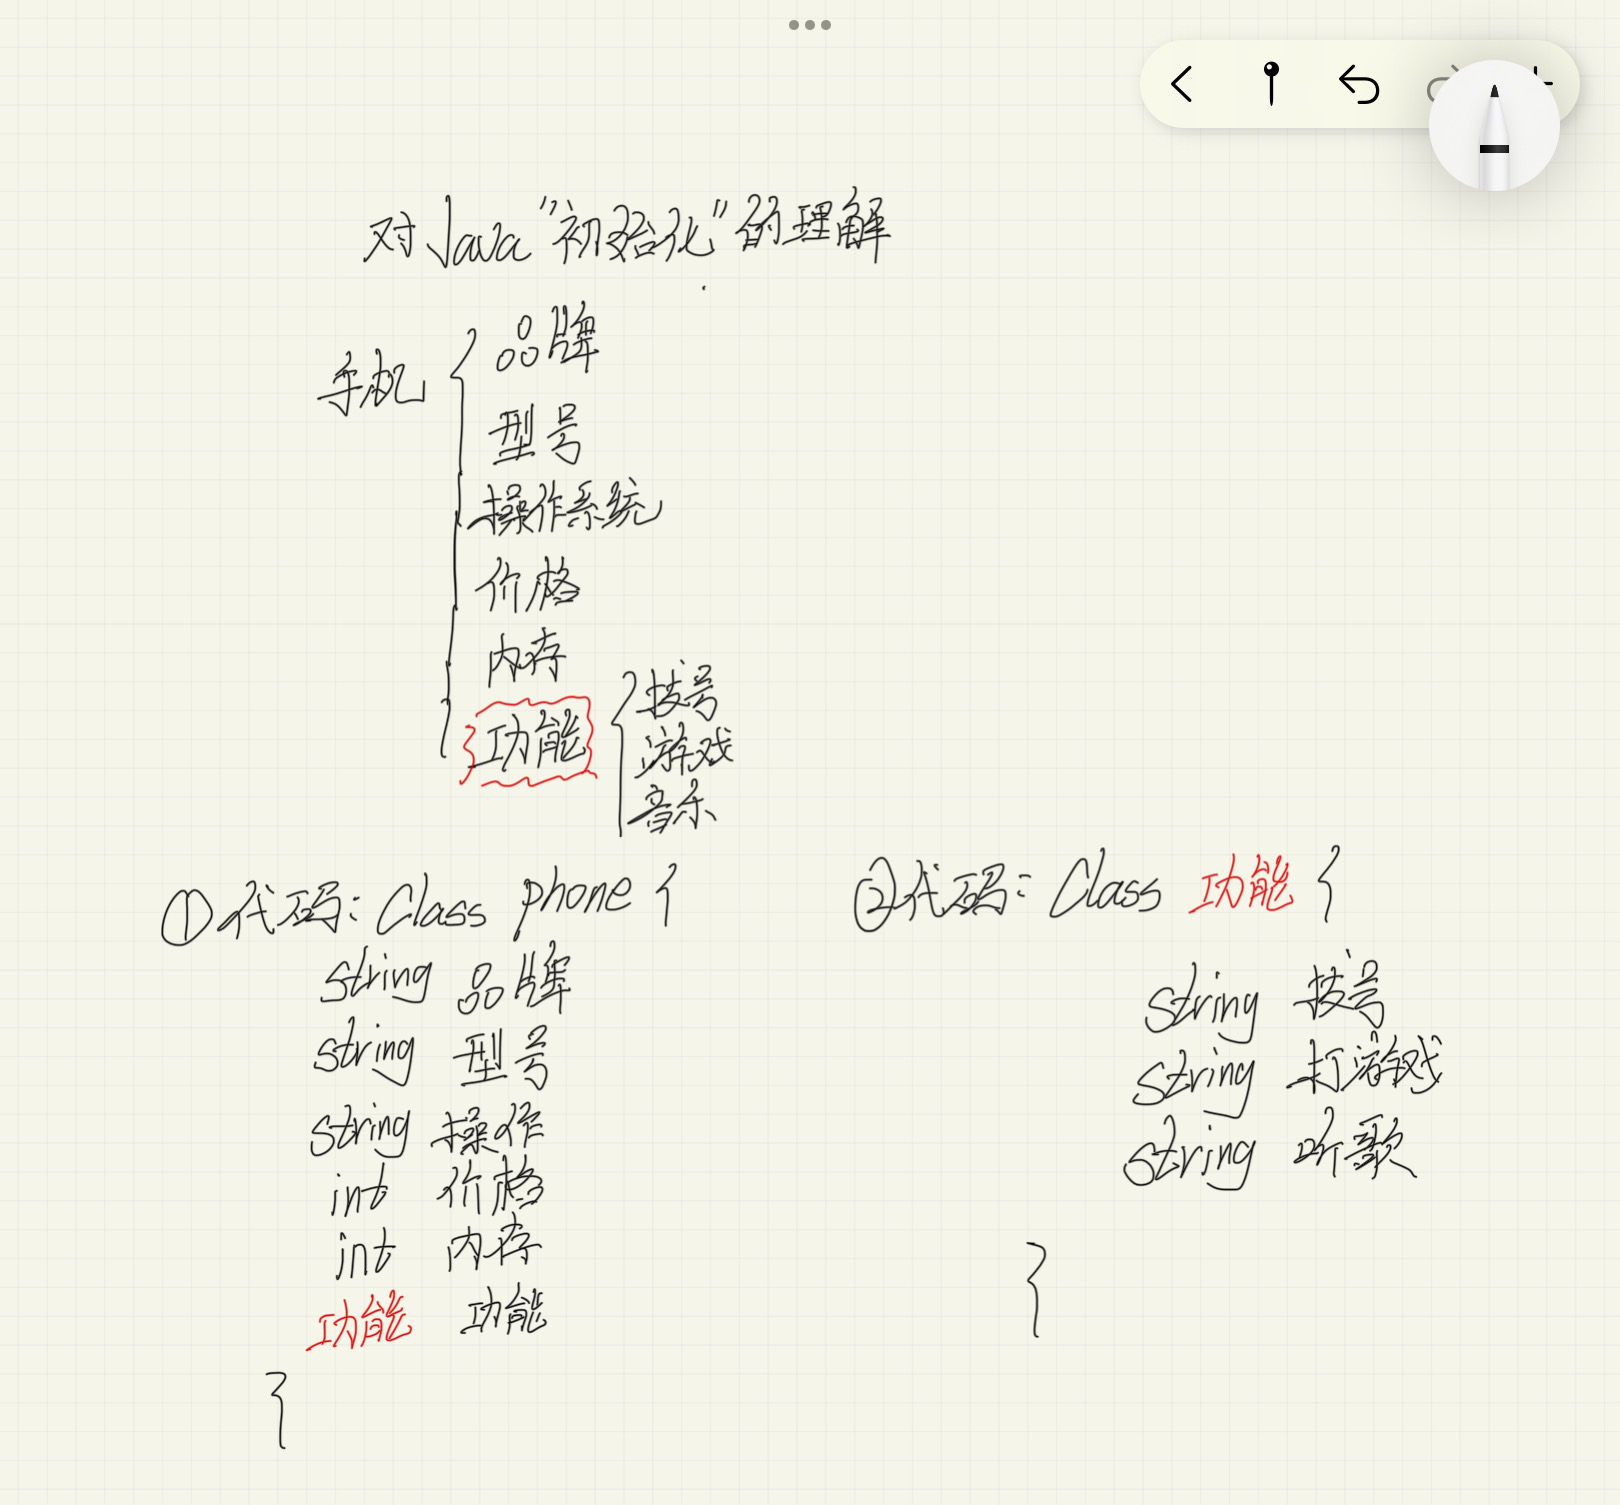 对Java"初始化"的理解
手机 { 品牌
型号
操作系统
价格
内存
功能 { 拨号
游戏
音乐
①代码: Class phone {
string 品牌
string 型号
string 操作
int 价格
int 内存
功能 功能
}
②代码: Class 功能 {
string 拨号
string 打游戏
string 听歌
}